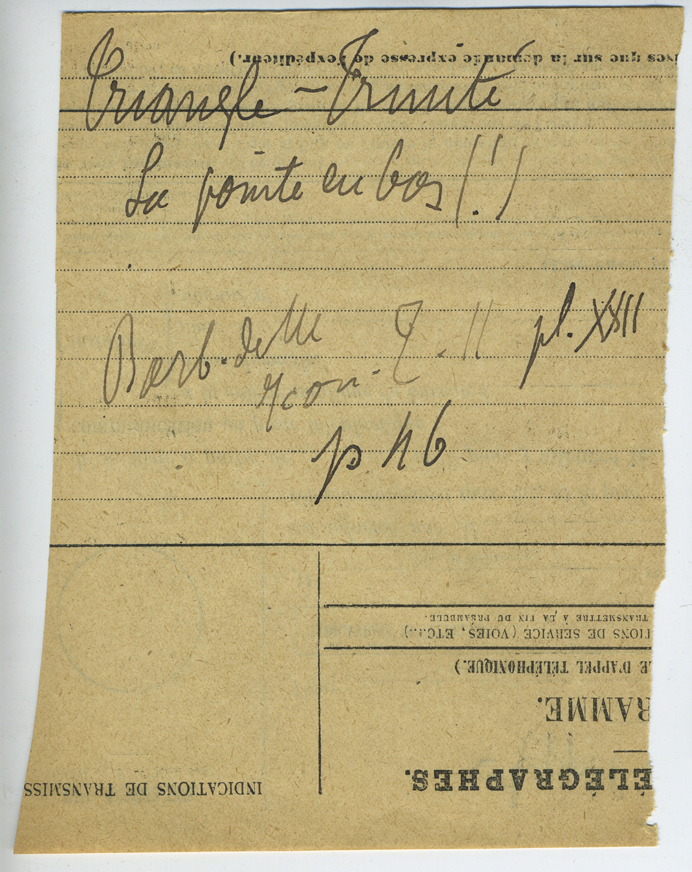 Triangle – Trinité
La pointe en bas (!)
Barb. de M
Icon. T. II pl. XXII
p. 46
ves que sur la demande expresse de l'expéditeur.)
TÉLÉGRAPHES.
RAMME.
E D'APPEL TÉLÉPHONIQUE.)
TIONS DE SERVICE (VOIES, ETC...)
TRANSMETTRE À LA FIN DU PRÉAMBULE.
INDICATIONS DE TRANSMISS